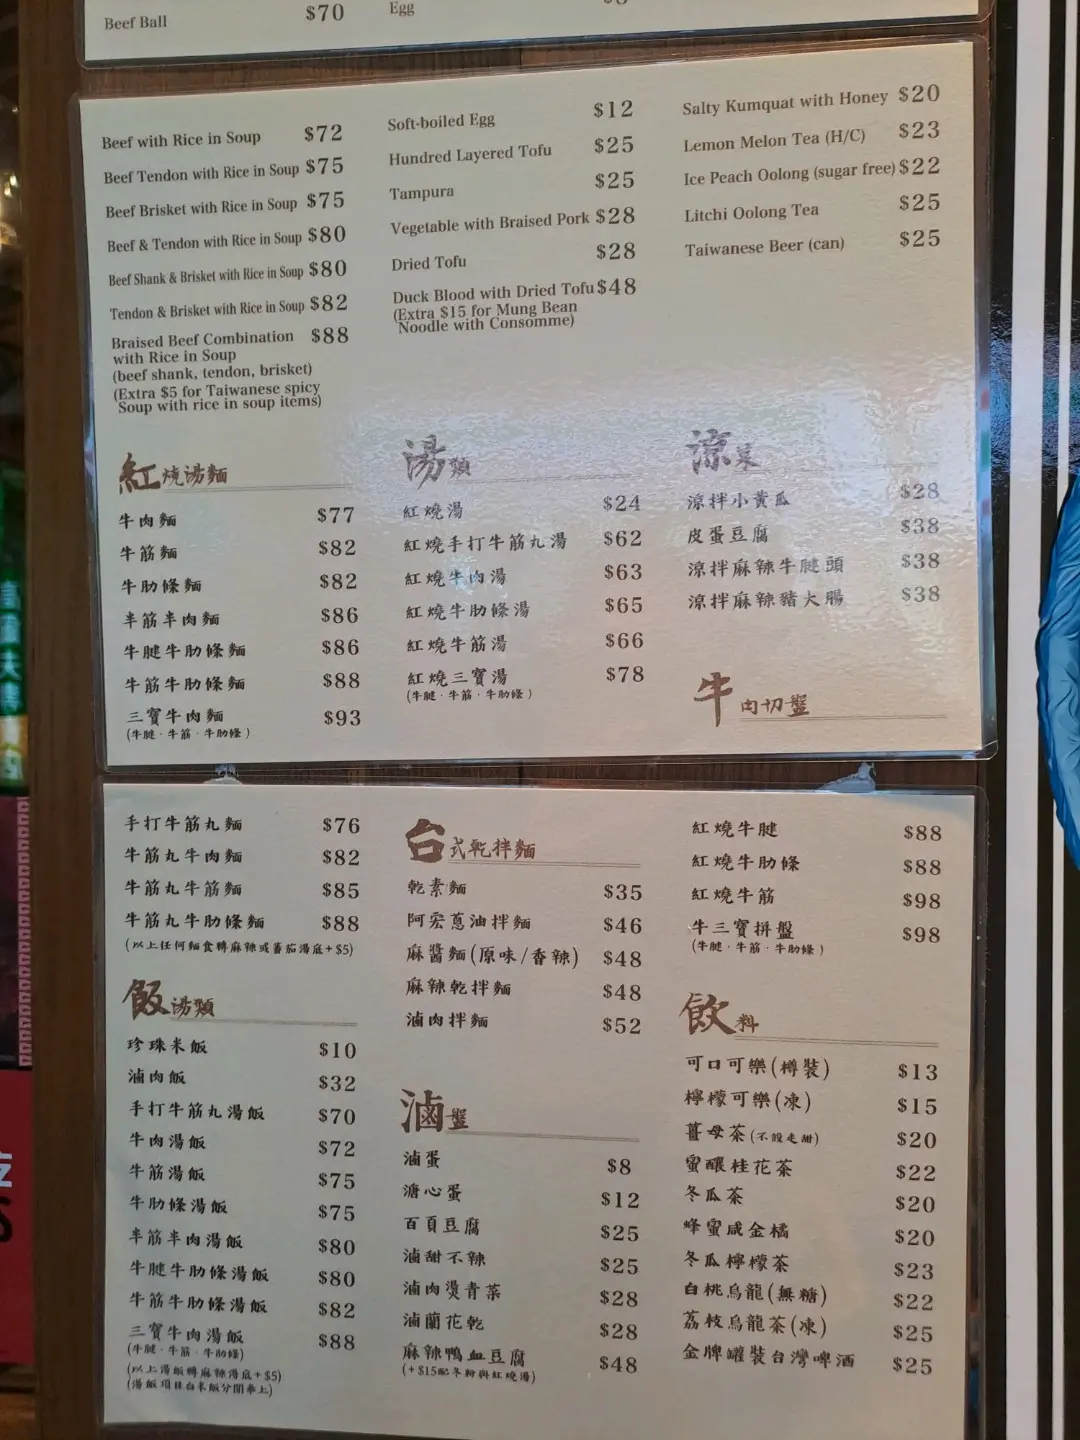 Beef Ball $70
Egg
Beef with Rice in Soup $72
Beef Tendon with Rice in Soup $75
Beef Brisket with Rice in Soup $75
Beef & Tendon with Rice in Soup $80
Beef Shank & Brisket with Rice in Soup $80
Tendon & Brisket with Rice in Soup $82
Braised Beef Combination $88
with Rice in Soup
(beef shank, tendon, brisket)
(Extra $5 for Taiwanese spicy
Soup with rice in soup items)
Soft-boiled Egg $12
Hundred Layered Tofu $25
Tampura $25
Vegetable with Braised Pork $28
Dried Tofu $28
Duck Blood with Dried Tofu $48
(Extra $15 for Mung Bean
Noodle with Consomme)
Salty Kumquat with Honey $20
Lemon Melon Tea (H/C) $23
Ice Peach Oolong (sugar free) $22
Litchi Oolong Tea $25
Taiwanese Beer (can) $25
紅燒湯麵
牛肉麵 $77
牛筋麵 $82
牛肋條麵 $82
半筋半肉麵 $86
牛腱牛肋條麵 $86
牛筋牛肋條麵 $88
三寶牛肉麵 $93
(牛腱．牛筋．牛肋條)
湯類
紅燒湯 $24
紅燒手打牛筋丸湯 $62
紅燒牛肉湯 $63
紅燒牛肋條湯 $65
紅燒牛筋湯 $66
紅燒三寶湯 $78
(牛腱．牛筋．牛肋條)
涼菜
涼拌小黃瓜 $28
皮蛋豆腐 $38
涼拌麻辣牛腱頭 $38
涼拌麻辣豬大腸 $38
牛肉切盤
手打牛筋丸麵 $76
牛筋丸牛肉麵 $82
牛筋丸牛筋麵 $85
牛筋丸牛肋條麵 $88
(以上任何麵食轉麻辣或蕃茄湯底+$5)
飯湯類
珍珠米飯 $10
滷肉飯 $32
手打牛筋丸湯飯 $70
牛肉湯飯 $72
牛筋湯飯 $75
牛肋條湯飯 $75
半筋半肉湯飯 $80
牛腱牛肋條湯飯 $80
牛筋牛肋條湯飯 $82
三寶牛肉湯飯 $88
(牛腱．牛筋．牛肋條)
(以上湯飯轉麻辣湯底+$5)
(湯飯項目白米飯分開奉上)
台式乾拌麵
乾素麵 $35
阿宏蔥油拌麵 $46
麻醬麵(原味/香辣) $48
麻辣乾拌麵 $48
滷肉拌麵 $52
滷盤
滷蛋 $8
溏心蛋 $12
百頁豆腐 $25
滷甜不辣 $25
滷肉燙青菜 $28
滷蘭花乾 $28
麻辣鴨血豆腐 $48
(+$15配冬粉與紅燒湯)
紅燒牛腱 $88
紅燒牛肋條 $88
紅燒牛筋 $98
牛三寶拼盤 $98
(牛腱．牛筋．牛肋條)
飲料
可口可樂(樽裝) $13
檸檬可樂(凍) $15
薑母茶(不設走甜) $20
蜜釀桂花茶 $22
冬瓜茶 $20
蜂蜜咸金橘 $20
冬瓜檸檬茶 $23
白桃烏龍(無糖) $22
荔枝烏龍茶(凍) $25
金牌罐裝台灣啤酒 $25